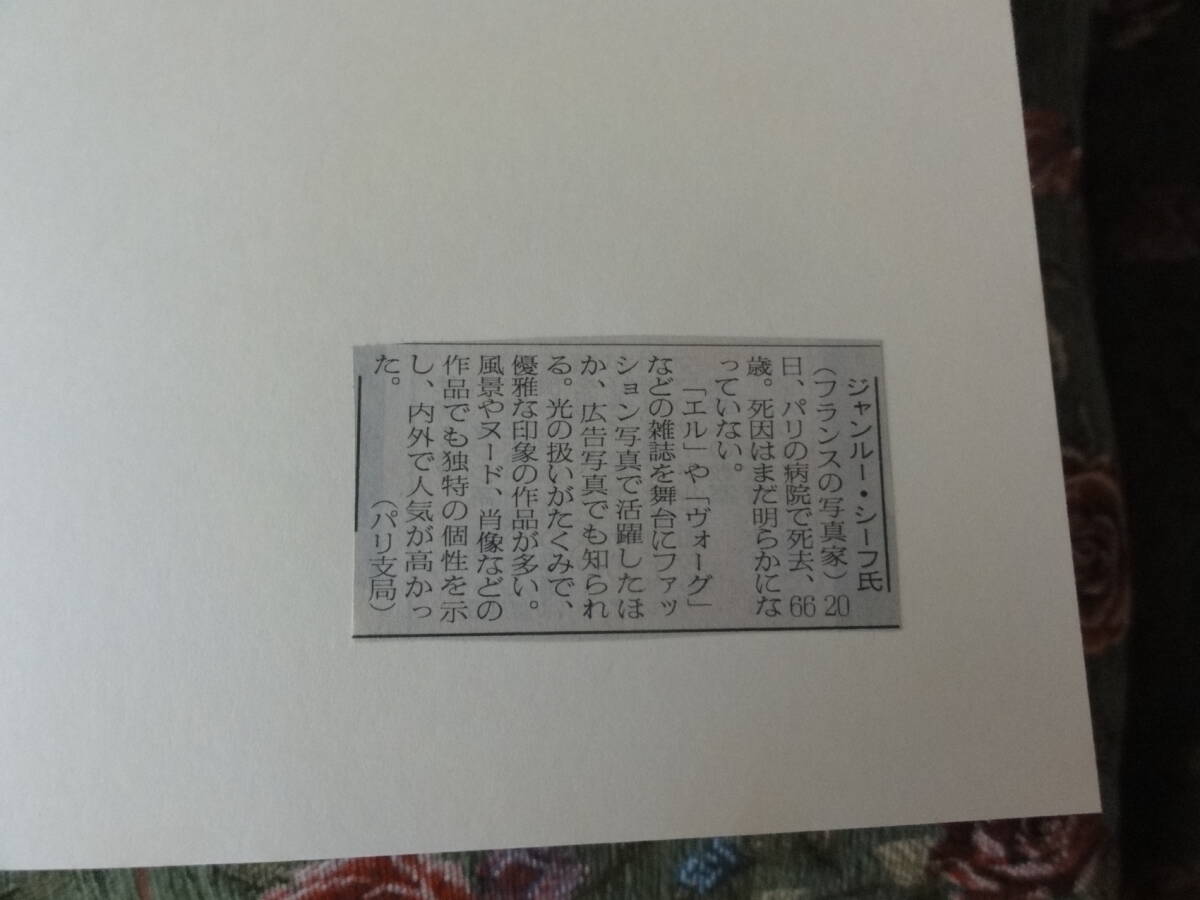 ジャンルー・シーフ氏
（フランスの写真家）20
日、パリの病院で死去、66
歳。死因はまだ明らかにな
っていない。
「エル」や「ヴォーグ」
などの雑誌を舞台にファッ
ション写真で活躍したほ
か、広告写真でも知られ
る。光の扱いがたくみで、
優雅な印象の作品が多い。
風景やヌード、肖像などの
作品でも独特の個性を示
し、内外で人気が高かっ
た。（パリ支局）